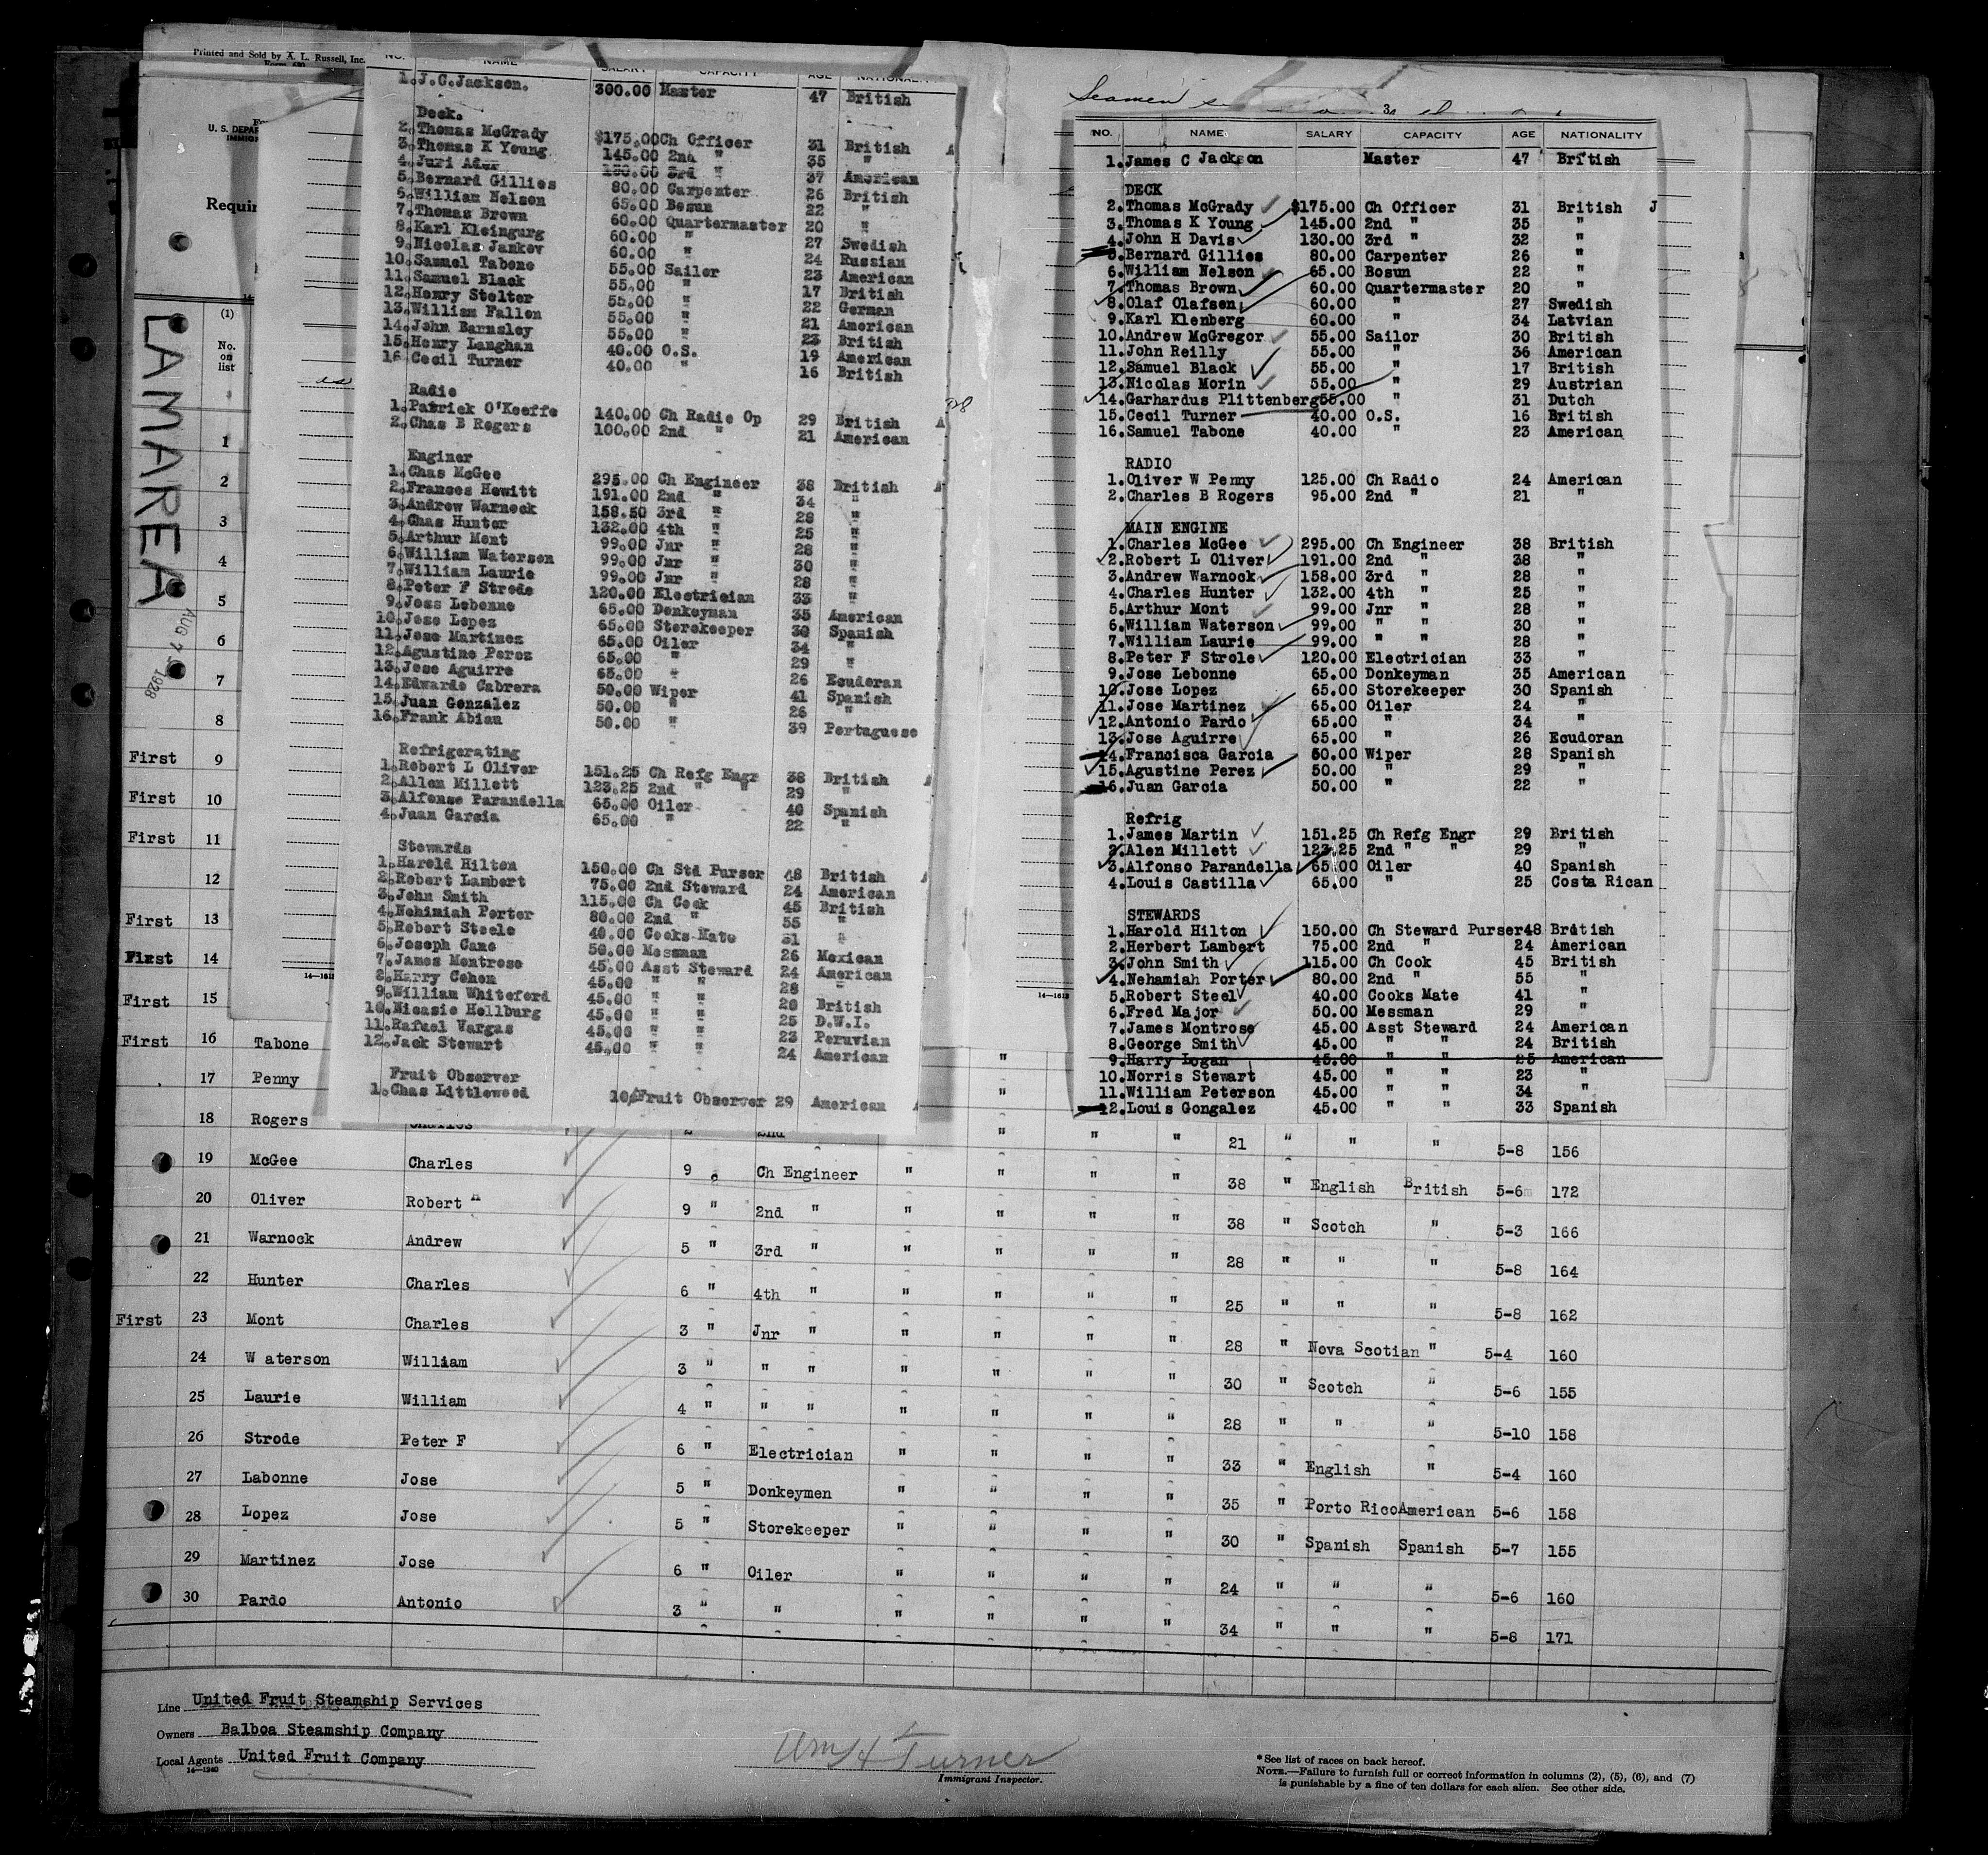 Printed and Sold by A. L. Russell, Inc.
U. S. DEPAR
IMMIG
Requir
LAMAREA
AUG 7 1928
(1)
No.
on
list
1
2
3
4
5
6
7
8
First 9
First 10
First 11
12
First 13
First 14
First 15
First 16 Tabone
17 Penny
18 Rogers
NO. NAME SALARY CAPACITY AGE NATIONALIT
1. J.C.Jackson. 300.00 Master 47 British
Deck.
2. Thomas McGrady $175.00 Ch Officer 31 British
3. Thomas K Young 145.00 2nd " 35 "
4. Juri 130.00 3rd " 37 American
5. Bernard Gillies 80.00 Carpenter 26 British
6. William Nelson 65.00 Bosun 22 "
7. Thomas Brown 60.00 Quartermaster 20 "
8. Karl Kleingurg 60.00 " 27 Swedish
9. Nicolas Jankov 60.00 " 24 Russian
10. Samuel Tabone 55.00 Sailor 23 American
11. Samuel Black 55.00 " 17 British
12. Henry Stelter 55.00 " 22 German
13. William Fallon 55.00 " 21 American
14. John Barnsley 55.00 " 23 British
15. Henry Langhan 40.00 O.S. 19 American
16. Cecil Turner 40.00 " 16 British
Radio
1. Patrick O'Keeffe 140.00 Ch Radio Op 29 British
2. Chas B Rogers 100.00 2nd " 21 American
Enginer
1. Chas McGee 295.00 Ch Engineer 38 British
2. Frances Hewitt 191.00 2nd " 34 "
3. Andrew Warnock 158.50 3rd " 28 "
4. Chas Hunter 132.00 4th " 25 "
5. Arthur Mont 99.00 Jnr " 28 "
6. William Waterson 99.00 Jnr " 30 "
7. William Laurie 99.00 Jnr " 28 "
8. Peter F Strode 120.00 Electrician 33 "
9. Joss Lebonne 65.00 Donkeyman 35 American
10. Jose Lopez 65.00 Storekeeper 30 Spanish
11. Jose Martinez 65.00 Oiler 34 "
12. Agustine Perez 65.00 " 29 "
13. Jose Aguirre 65.00 " 26 Ecudoran
14. Edwardo Cabrera 50.00 Wiper 41 Spanish
15. Juan Gonzalez 50.00 " 26 "
16. Frank Abian 50.00 " 39 Portuguese
Refrigerating
1. Robert L Oliver 151.25 Ch Refg Engr 38 British
2. Allen Millett 123.25 2nd " " 29 "
3. Alfonso Parandella 65.00 Oiler 40 Spanish
4. Juan Garcia 65.00 " 22 "
Stewards
1. Harold Hilton 150.00 Ch Std Purser 48 British
2. Robert Lambert 75.00 2nd Steward 24 American
3. John Smith 115.00 Ch Cook 45 British
4. Nehimiah Porter 80.00 2nd " 55 "
5. Robert Steele 40.00 Cooks Mate 31 "
6. Joseph Cano 50.00 Messman 26 Mexican
7. James Montrose 45.00 Asst Steward 24 American
8. Harry Cohen 45.00 " " 28 "
9. William Whiteford 45.00 " " 20 British
10. Nicasio Hellburg 45.00 " " 25 D.W.I.
11. Rafuel Vargas 45.00 " " 23 Peruvian
12. Jack Stewart 45.00 " " 24 American
Fruit Observer
1. Chas Littlewood Fruit Observer 29 American
Seamen
NO. NAME SALARY CAPACITY AGE NATIONALITY
1. James C Jackson Master 47 British
DECK
2. Thomas McGrady $175.00 Ch Officer 31 British J
3. Thomas K Young 145.00 2nd " 35 "
4. John H Davis 130.00 3rd " 32 "
5. Bernard Gillies 80.00 Carpenter 26 "
6. William Nelson 65.00 Bosun 22 "
7. Thomas Brown 60.00 Quartermaster 20 "
8. Olaf Olafsen 60.00 " 27 Swedish
9. Karl Klenberg 60.00 " 34 Latvian
10. Andrew McGregor 55.00 Sailor 30 British
11. John Reilly 55.00 " 36 American
12. Samuel Black 55.00 " 17 British
13. Nicolas Morin 55.00 " 29 Austrian
14. Garhardus Plittenberg 55.00 " 31 Dutch
15. Cecil Turner 40.00 O.S. 16 British
16. Samuel Tabone 40.00 " 23 American
RADIO
1. Oliver W Penny 125.00 Ch Radio 24 American
2. Charles B Rogers 95.00 2nd " 21 "
MAIN ENGINE
1. Charles McGee 295.00 Ch Engineer 38 British
2. Robert L Oliver 191.00 2nd " 38 "
3. Andrew Warnock 158.00 3rd " 28 "
4. Charles Hunter 132.00 4th " 25 "
5. Arthur Mont 99.00 Jnr " 28 "
6. William Waterson 99.00 " " 30 "
7. William Laurie 99.00 " " 28 "
8. Peter F Strole 120.00 Electrician 33 "
9. Jose Lebonne 65.00 Donkeyman 35 American
10. Jose Lopez 65.00 Storekeeper 30 Spanish
11. Jose Martinez 65.00 Oiler 24 "
12. Antonio Pardo 65.00 " 34 "
13. Jose Aguirre 65.00 " 26 Ecudoran
14. Francisca Garcia 50.00 Wiper 28 Spanish
15. Agustine Perez 50.00 " 29 "
16. Juan Garcia 50.00 " 22 "
Refrig
1. James Martin 151.25 Ch Refg Engr 29 British
2. Alen Millett 123.25 2nd " " 29 "
3. Alfonso Parandella 65.00 Oiler 40 Spanish
4. Louis Castilla 65.00 " 25 Costa Rican
STEWARDS
1. Harold Hilton 150.00 Ch Steward Purser 48 British
2. Herbert Lambert 75.00 2nd " 24 American
3. John Smith 115.00 Ch Cook 45 British
4. Nehamiah Porter 80.00 2nd " 55 "
5. Robert Steel 40.00 Cooks Mate 41 "
6. Fred Major 50.00 Messman 29 "
7. James Montrose 45.00 Asst Steward 24 American
8. George Smith 45.00 " " 24 British
9. Harry Logan 45.00 " " 25 American
10. Norris Stewart 45.00 " " 23 "
11. William Peterson 45.00 " " 34 "
12. Louis Gongalez 45.00 " " 33 Spanish
Charles 2nd " " " 21 " " " 5-8 156
19 McGee Charles 9 Ch Engineer " " " " 38 " English British 5-6 172
20 Oliver Robert 9 " 2nd " " " " " 38 " Scotch " 5-3 166
21 Warnock Andrew 5 " 3rd " " " " " 28 " " " 5-8 164
22 Hunter Charles 6 " 4th " " " " " 25 " " " 5-8 162
First 23 Mont Charles 3 " Jnr " " " " " 28 " Nova Scotian " 5-4 160
24 W aterson William 3 " " " " " " " 30 " Scotch " 5-6 155
25 Laurie William 4 " " " " " " " 28 " " " 5-10 158
26 Strode Peter F 6 " Electrician " " " " 33 " English " 5-4 160
27 Labonne Jose 5 " Donkeymen " " " " 35 " Porto Rico American 5-6 158
28 Lopez Jose 5 " Storekeeper " " " " 30 " Spanish Spanish 5-7 155
29 Martinez Jose 6 " Oiler " " " " 24 " " " 5-6 160
30 Pardo Antonio 3 " " " " " " 34 " " " 5-8 171
Line United Fruit Steamship Services
Owners Balboa Steamship Company
Local Agents United Fruit Company
14—1240
Wm H Turner
Immigrant Inspector.
*See list of races on back hereof.
NOTE.—Failure to furnish full or correct information in columns (2), (5), (6), and (7)
is punishable by a fine of ten dollars for each alien. See other side.